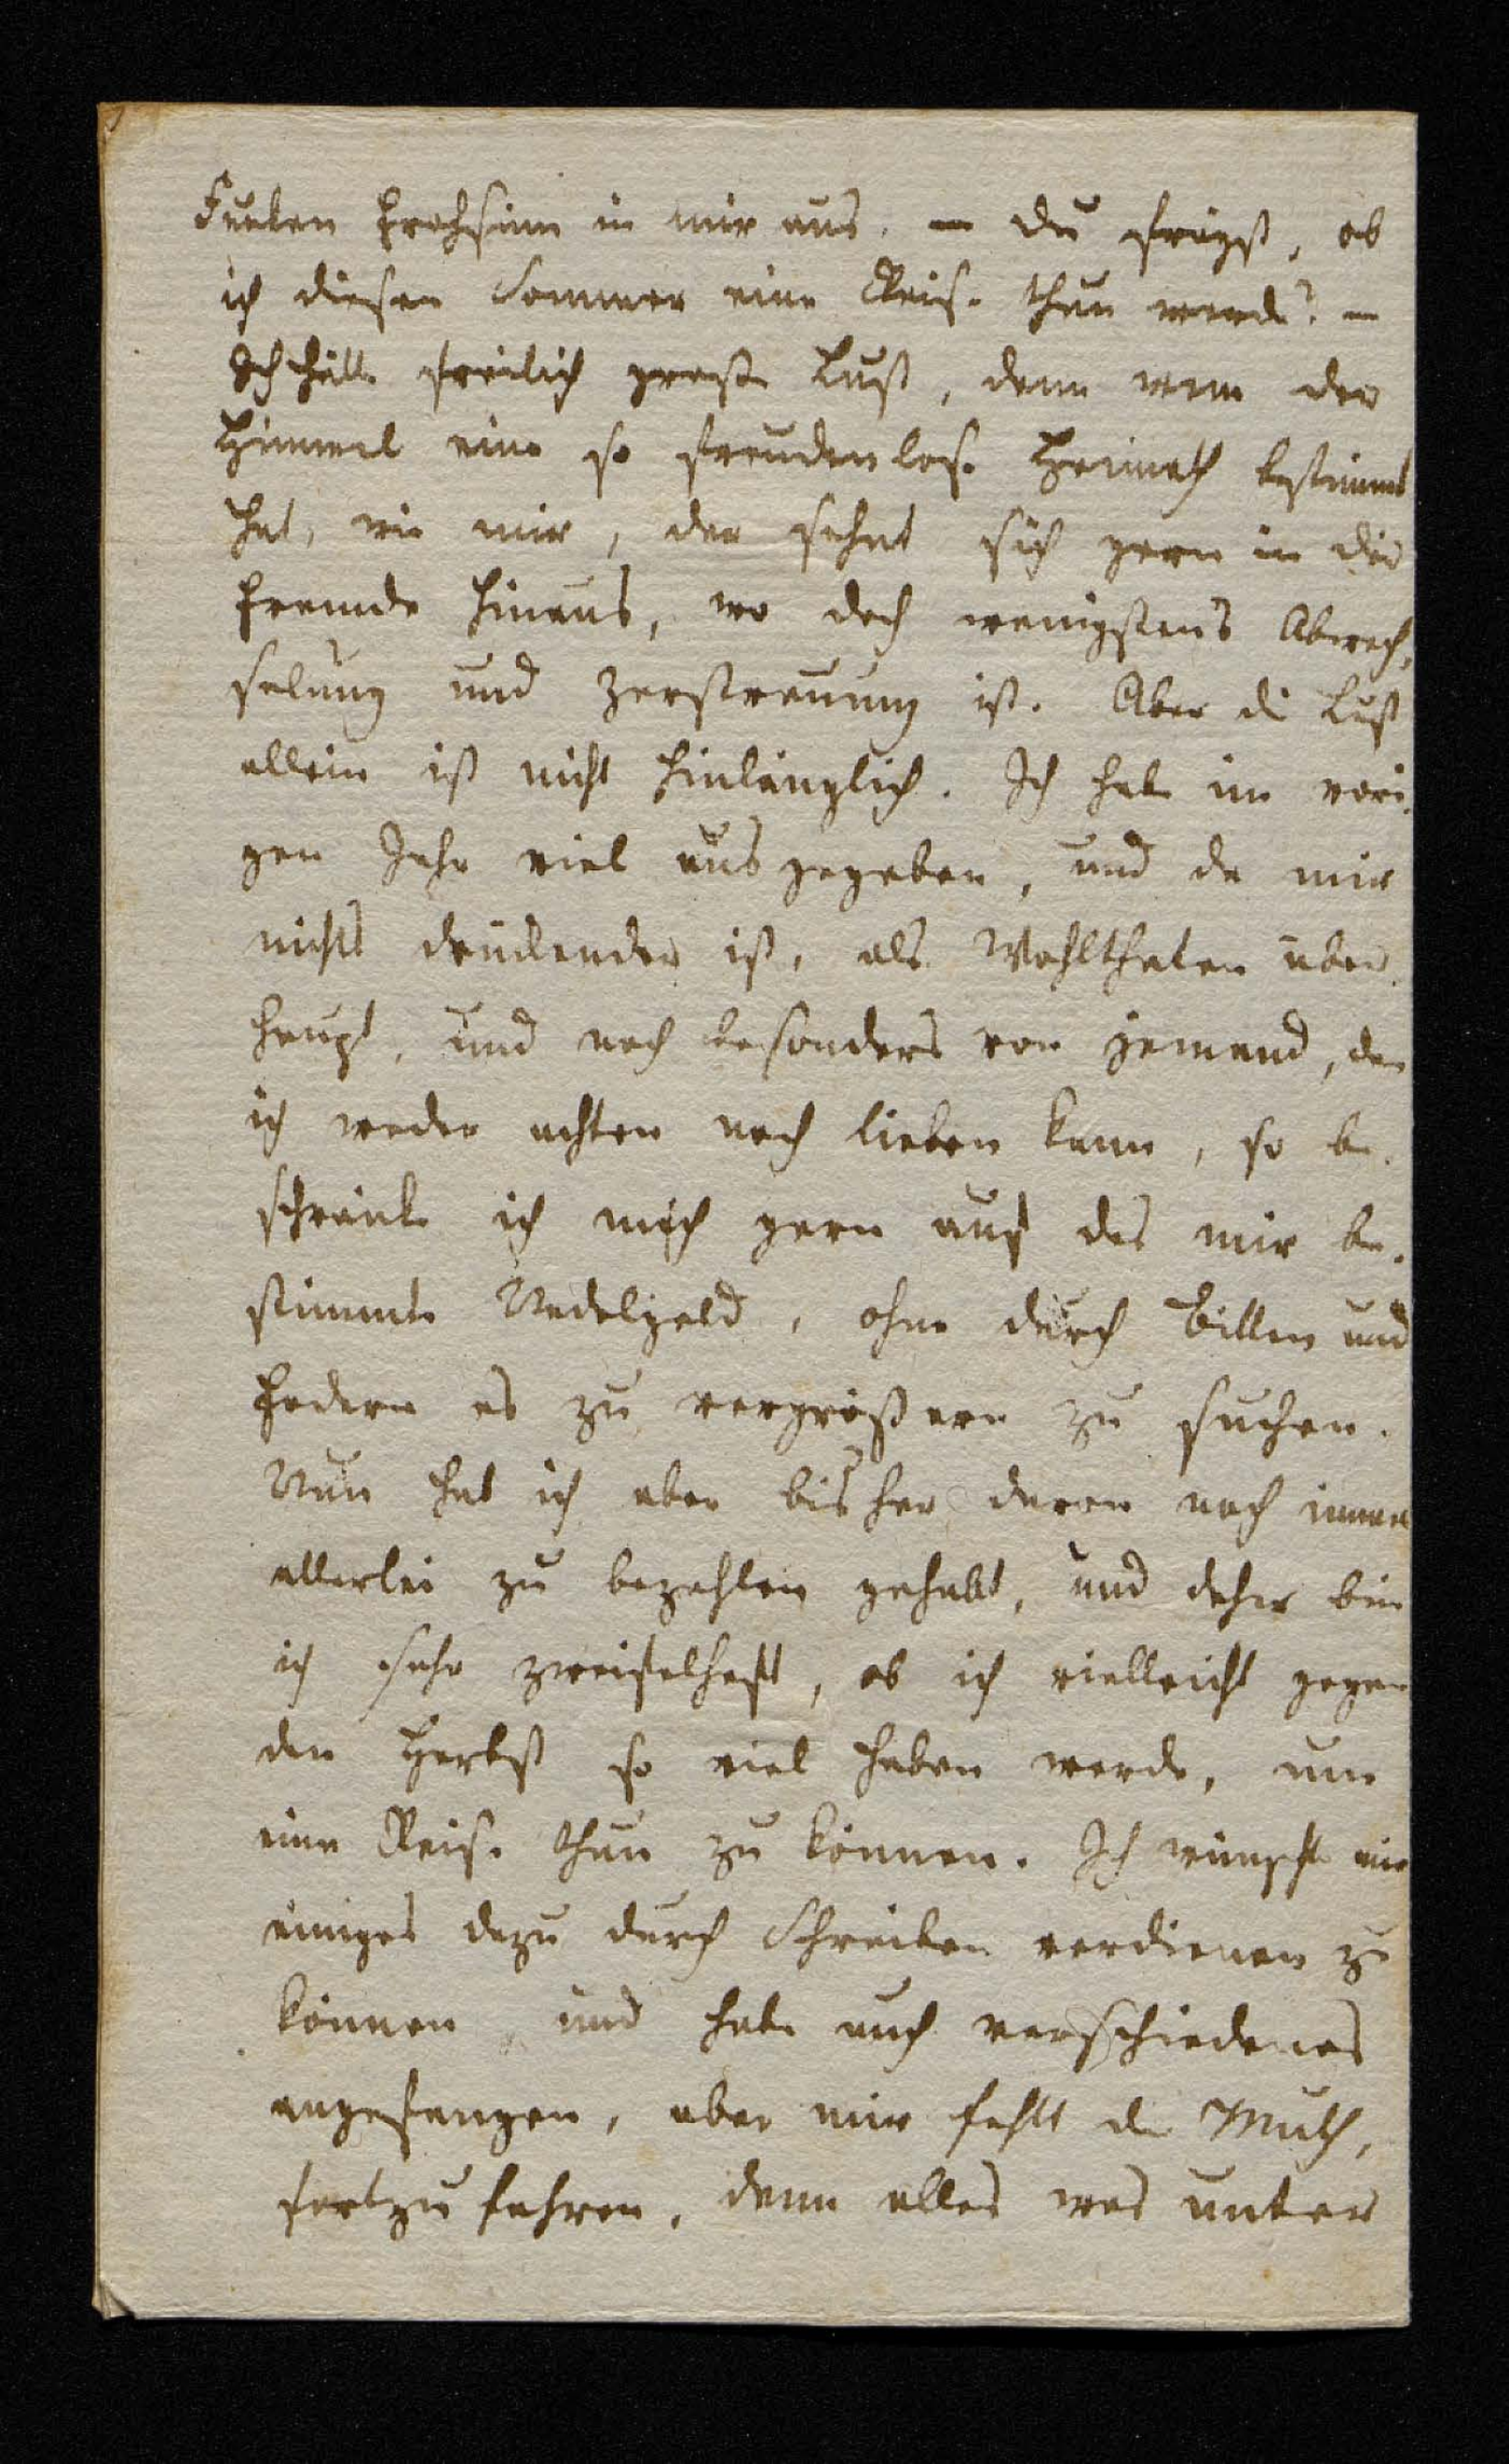 Funken Frohsinn in mir aus. – Du frägst, ob
ich diesen Sommer eine Reise thun werde? –
Ich hätte freilich große Lust, denn wem der
Himmel eine so freudenlose Heimath bestimmt
hat, wie mir, der sehnt sich gern in die
Fremde hinaus, wo doch wenigstens Abwech-
selung und Zerstreuung ist. Aber die Lust
allein ist nicht hinlänglich. Ich habe im vori-
gen Jahr viel ausgegeben, und da mir
nichts drückender ist, als Wohlthaten über-
haupt, und noch besonders von jemand, den
ich weder achten noch lieben kann, so be-
schränke ich mich gern auf das mir be-
stimmte Nadelgeld, ohne durch Bitten und
Fodern es zu vergrößern zu suchen.
Nun hab ich aber bisher davon noch immer
allerlei zu bezahlen gehabt, und daher bin
ich sehr zweifelhaft, ob ich vielleicht gegen
den Herbst so viel haben werde, um
eine Reise thun zu können. Ich wünschte mir
einiges dazu durch Schreiben verdienen zu
können, und habe auch verschiedenes
angefangen, aber mir fehlt der Muth,
fortzufahren, denn alles was unter